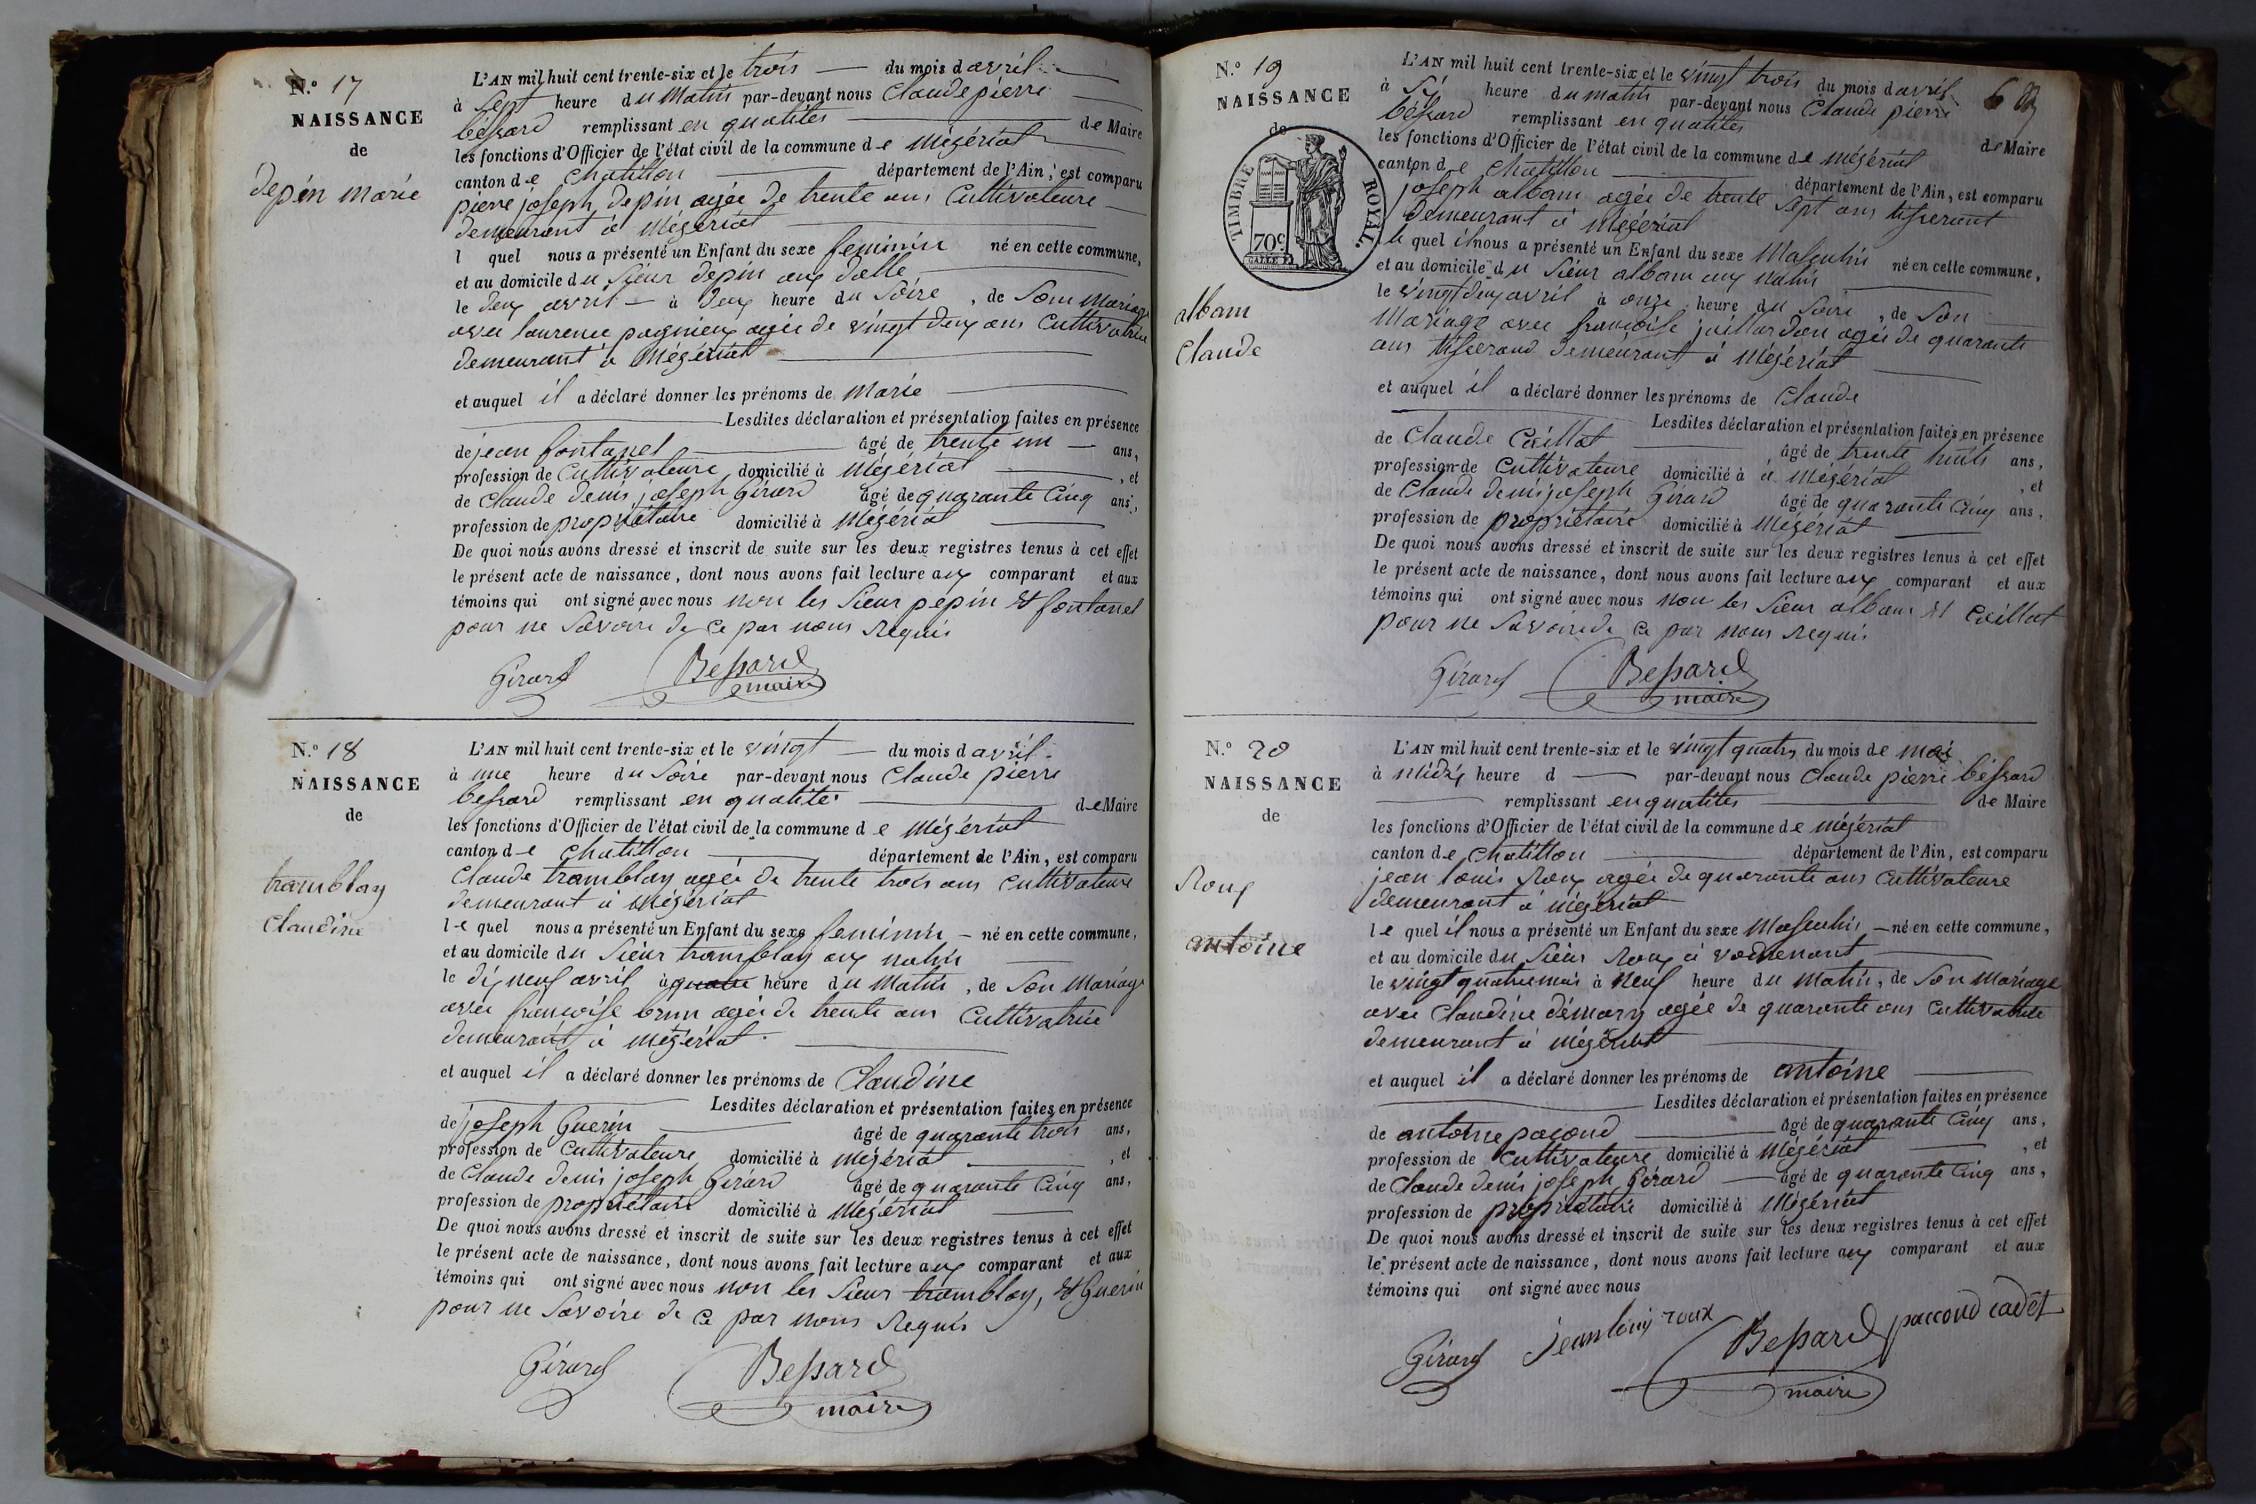 N.° 17
NAISSANCE
de
depin marie
L'AN mil huit cent trente-six et le trois du mois d avril
à sept heure du matin par-devant nous Claude pierre
béssard remplissant en qualités de Maire
les fonctions d'Officier de l'état civil de la commune de mégériat
canton de Chatillon département de l'Ain, est comparu
pierre joseph depin agée de trente ans Cultivateure
demeurant à Mégériat
l quel nous a présenté un Enfant du sexe feminin né en cette commune,
et au domicile du Sieur depin aux
le deux avril à deux heure du Soire, de Som Mariage
avec laurence pagnieux agée de vingt deux ans Cultivatrice
demeurant à Mégériat
et auquel il a déclaré donner les prénoms de Marie
Lesdites déclaration et présentation faites en présence
de jean fontanel âgé de trente un ans,
profession de Cultivateure domicilié à Mégériat , et
de Claude denis joseph Girard âgé de quarante Cinq ans,
profession de propriétaire domicilié à Mégériat
De quoi nous avons dressé et inscrit de suite sur les deux registres tenus à cet effet
le présent acte de naissance, dont nous avons fait lecture aux comparant et aux
témoins qui ont signé avec nous non les Sieur pépin et fontanel
pour ne Savoire de ce par nous Requis
Girard Bessard
maire
N.° 18
NAISSANCE
de
tramblay
Claudine
L'AN mil huit cent trente-six et le vingt du mois d avril
à une heure du Soire par-devant nous Claude pierre
béssard remplissant en qualités de Maire
les fonctions d'Officier de l'état civil de la commune de Mégériat
canton de Chatillon département de l'Ain, est comparu
Claude tramblay agée de trente trois ans Cultivateure
demeurant à Mégériat
le quel nous a présenté un Enfant du sexe feminin né en cette commune,
et au domicile du Sieur tramblay aux
le dix neuf avril à quatre heure du Matin, de Son Mariage
avec françoise brun agée de trente ans Cultivatrice
demeurant à Mégériat
et auquel il a déclaré donner les prénoms de Claudine
Lesdites déclaration et présentation faites en présence
de joseph Guerin âgé de quarante trois ans,
profession de Cultivateure domicilié à Mégériat , et
de Claude denis joseph Girard âgé de quarante Cinq ans,
profession de propriétaire domicilié à Mégériat
De quoi nous avons dressé et inscrit de suite sur les deux registres tenus à cet effet
le présent acte de naissance, dont nous avons fait lecture aux comparant et aux
témoins qui ont signé avec nous non les Sieur tramblay, et Guerin
pour ne Savoire de ce par nous Requis
Girard Bessard
maire
N.° 19
NAISSANCE
de
TIMBRE ROYAL.
70c
albam
Claude
L'AN mil huit cent trente-six et le vingt trois du mois d avril
à six heure du matin par-devant nous Claude pierre
béssard remplissant en qualités de Maire
les fonctions d'Officier de l'état civil de la commune de Mégériat
canton de Chatillon département de l'Ain, est comparu
joseph albam agée de trente Sept ans tisserant
demeurant à Mégériat
le quel il nous a présenté un Enfant du sexe Masculin né en cette commune,
et au domicile du Sieur albam aux
le vingt deux avril à onze heure du Soire, de Son
Mariage avec françoise juillardon agée de quarante
ans tisserand demeurant à Mégériat
et auquel il a déclaré donner les prénoms de Claude
Lesdites déclaration et présentation faites en présence
de Claude Caillat , âgé de trente huits ans,
profession de Cultivateure domicilié à à Mégériat , et
de Claude denis joseph Girard âgé de quarante Cinq ans,
profession de propriétaire domicilié à Mégériat
De quoi nous avons dressé et inscrit de suite sur les deux registres tenus à cet effet
le présent acte de naissance, dont nous avons fait lecture aux comparant et aux
témoins qui ont signé avec nous non les Sieur albam et Caillat
pour ne Savoire de ce par nous Requis
Girard Bessard
maire
N.° 20
NAISSANCE
de
Roux
antoine
L'AN mil huit cent trente-six et le vingt quatre du mois de mai
à Midis heure d par-devant nous Claude pierre béssard
remplissant en qualités de Maire
les fonctions d'Officier de l'état civil de la commune de Mégériat
canton de Chatillon département de l'Ain, est comparu
jean louis Roux agée de quarante ans Cultivateure
demeurant à Mégériat
le quel il nous a présenté un Enfant du sexe Masculin né en cette commune,
et au domicile du Sieur Roux à
le vingt quatre mai à neuf heure du Matin, de Son Mariage
avec Claudine démary agée de quarante ans Cultivatrice
demeurant à Mégériat
et auquel il a déclaré donner les prénoms de antoine
Lesdites déclaration et présentation faites en présence
de antoine pacoud âgé de quarante Cinq ans,
profession de Cultivateure domicilié à Mégériat , et
de Claude denis joseph Girard âgé de quarante Cinq ans,
profession de propriétaire domicilié à Mégériat
De quoi nous avons dressé et inscrit de suite sur les deux registres tenus à cet effet
le présent acte de naissance, dont nous avons fait lecture aux comparant et aux
témoins qui ont signé avec nous
Girard jean louis roux Bessard paccoud cadet
maire